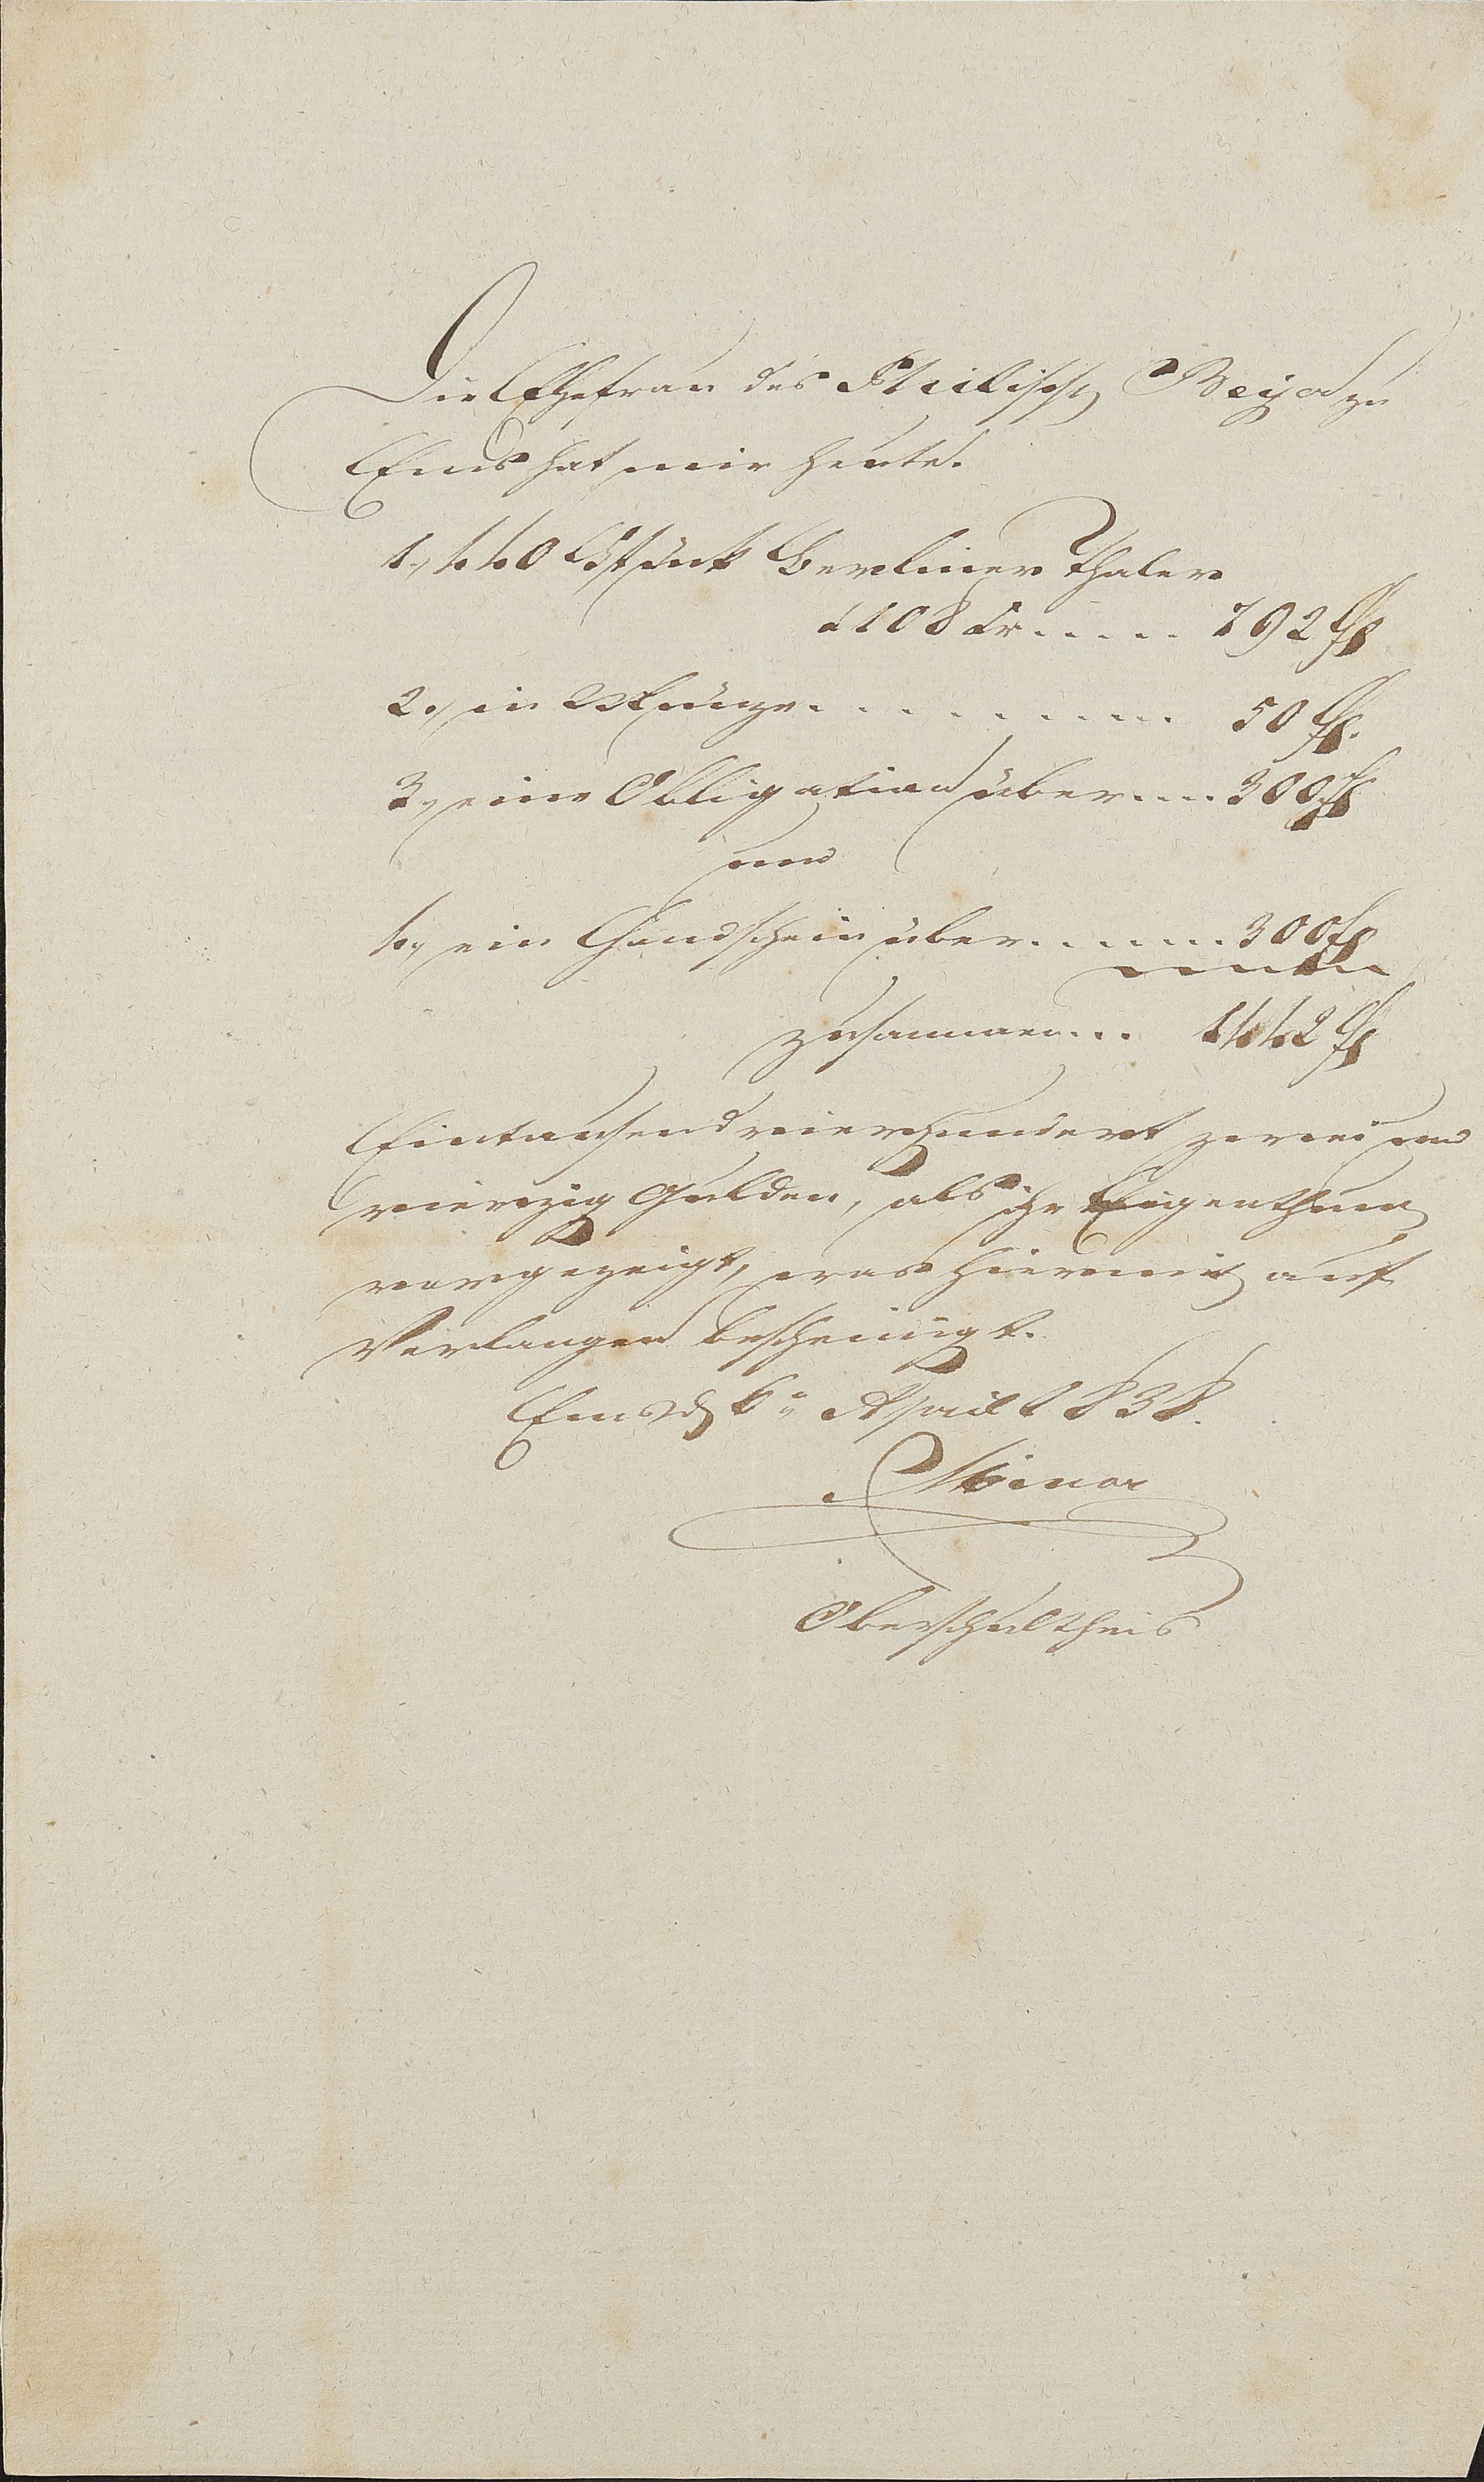 Die Ehefrau des Philipp Beija zu
Ems hat mir heute.
1., 440 Stück Berliner Thaler
à 108 Xr..... 792 fl
2., in Münze........... 50 fl.
3., eine Obligation über.... 300 fl
und
4., ein Handschein über....... 300 fl
zusammen... 1442 fl
Eintausend vierhundert zwei und
vierzig Gulden, als ihr Eigenthum
vorgezeigt, was hiermit auf
Verlangen bescheinigt.
Ems d 6n April 1838.
Oberschultheis